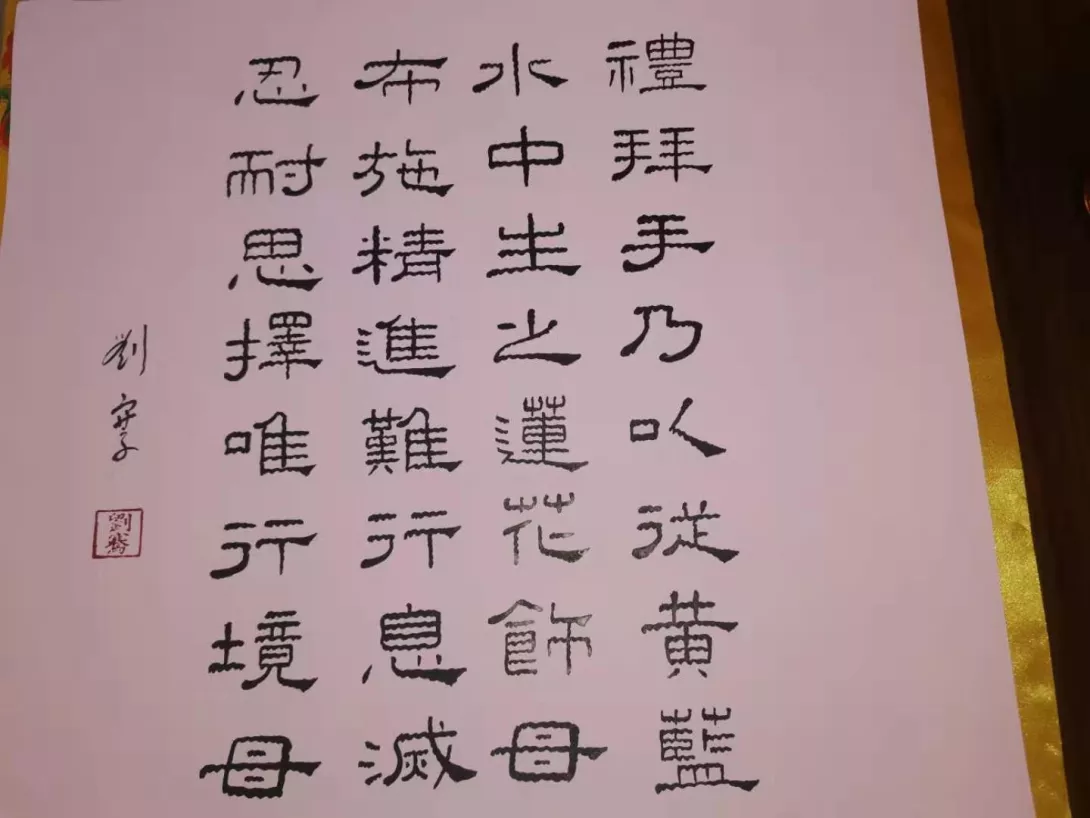 禮拜手乃以從黄藍
水中生之蓮花飾母
布施精進難行息滅
忍耐思擇唯行境母
劉
劉